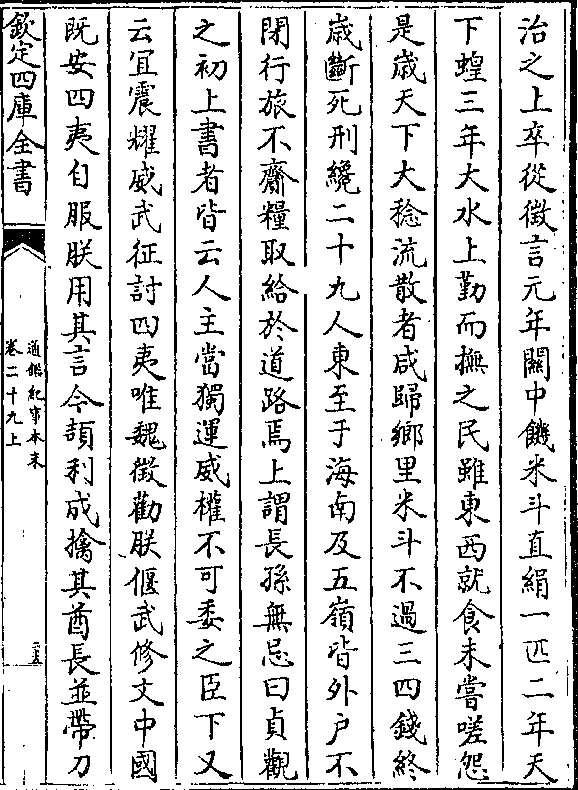 治之上卒從徵言元年關中饑米斗直絹一匹二年天
下蝗三年大水上勤而撫之民雖東西就食未嘗嗟怨
是歲天下大稔流散者咸歸鄉里米斗不過三四錢終
歲斷死刑纔二十九人東至于海南及五嶺皆外户不
閉行旅不齎糧取給於道路焉上謂長孫無忌曰貞觀
之初上書者皆云人主當獨運威權不可委之臣下又
云宜震耀威武征討四夷唯魏徵勸朕偃武修文中國
既安四夷自服朕用其言今頡利成擒其酋長並帶刀
欽定四庫全書
通鑑紀事本末
卷二十九上
二五